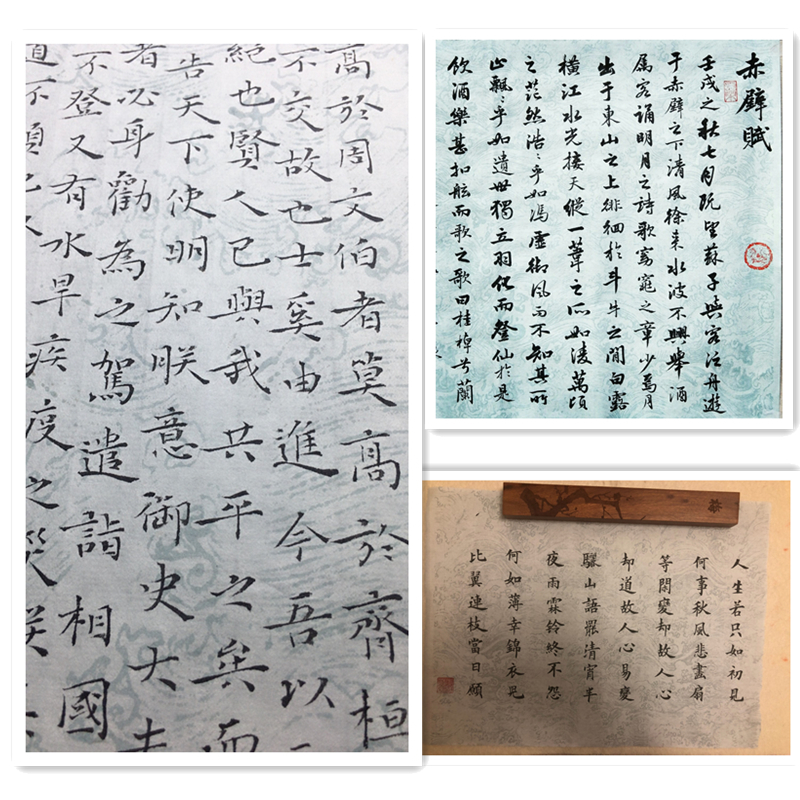 高於周文伯者莫高於齊桓
不交故也士奚由進今吾以
絕也賢人已與我共平之矣而
告天下使明知朕意御史大
者必身勸為之駕遣詣相國
不登又有水旱疾疫之災朕
道不順
赤壁賦
壬戌之秋七月既望蘇子與客泛舟遊
于赤壁之下清風徐來水波不興舉酒
屬客誦明月之詩歌窈窕之章少焉月
出于東山之上徘徊於斗牛之間白露
橫江水光接天縱一葦之所如凌萬頃
之茫然浩々乎如馮虛御風而不知其所
止飄々乎如遺世獨立羽化而登仙於是
飲酒樂甚扣舷而歌之歌曰桂棹兮蘭
人生若只如初見
何事秋風悲畫扇
等閒變却故人心
却道故人心易變
驪山語罷清宵半
夜雨霖鈴終不怨
何如薄幸錦衣兒
比翼連枝當日願